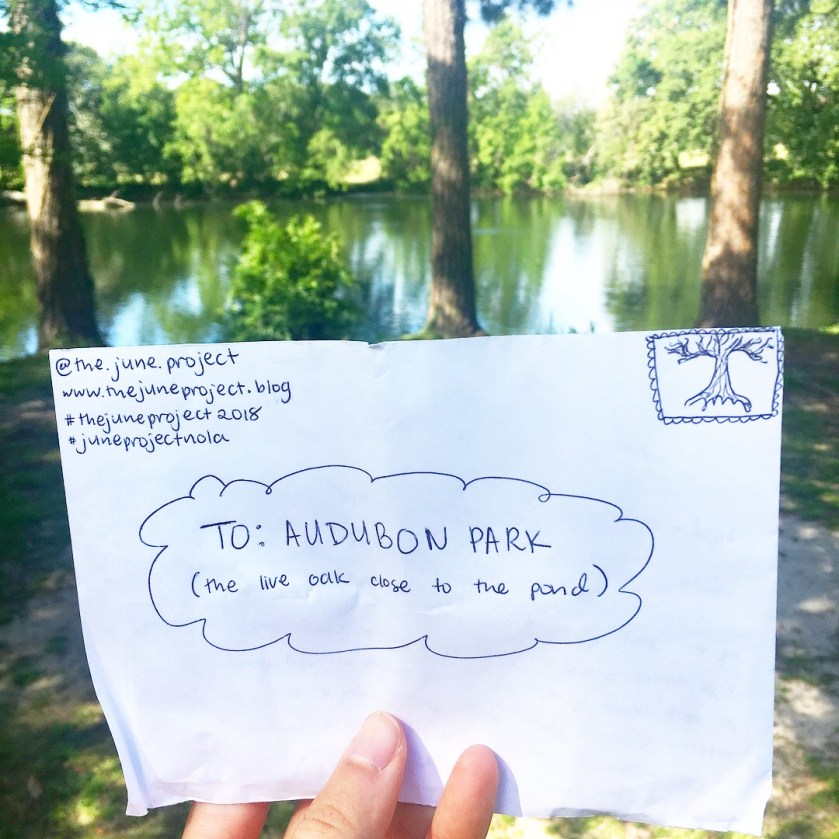 @the.june.project
www.thejuneproject.blog
#thejuneproject2018
#juneprojectnola
TO: AUDUBON PARK
(the live oak close to the pond)